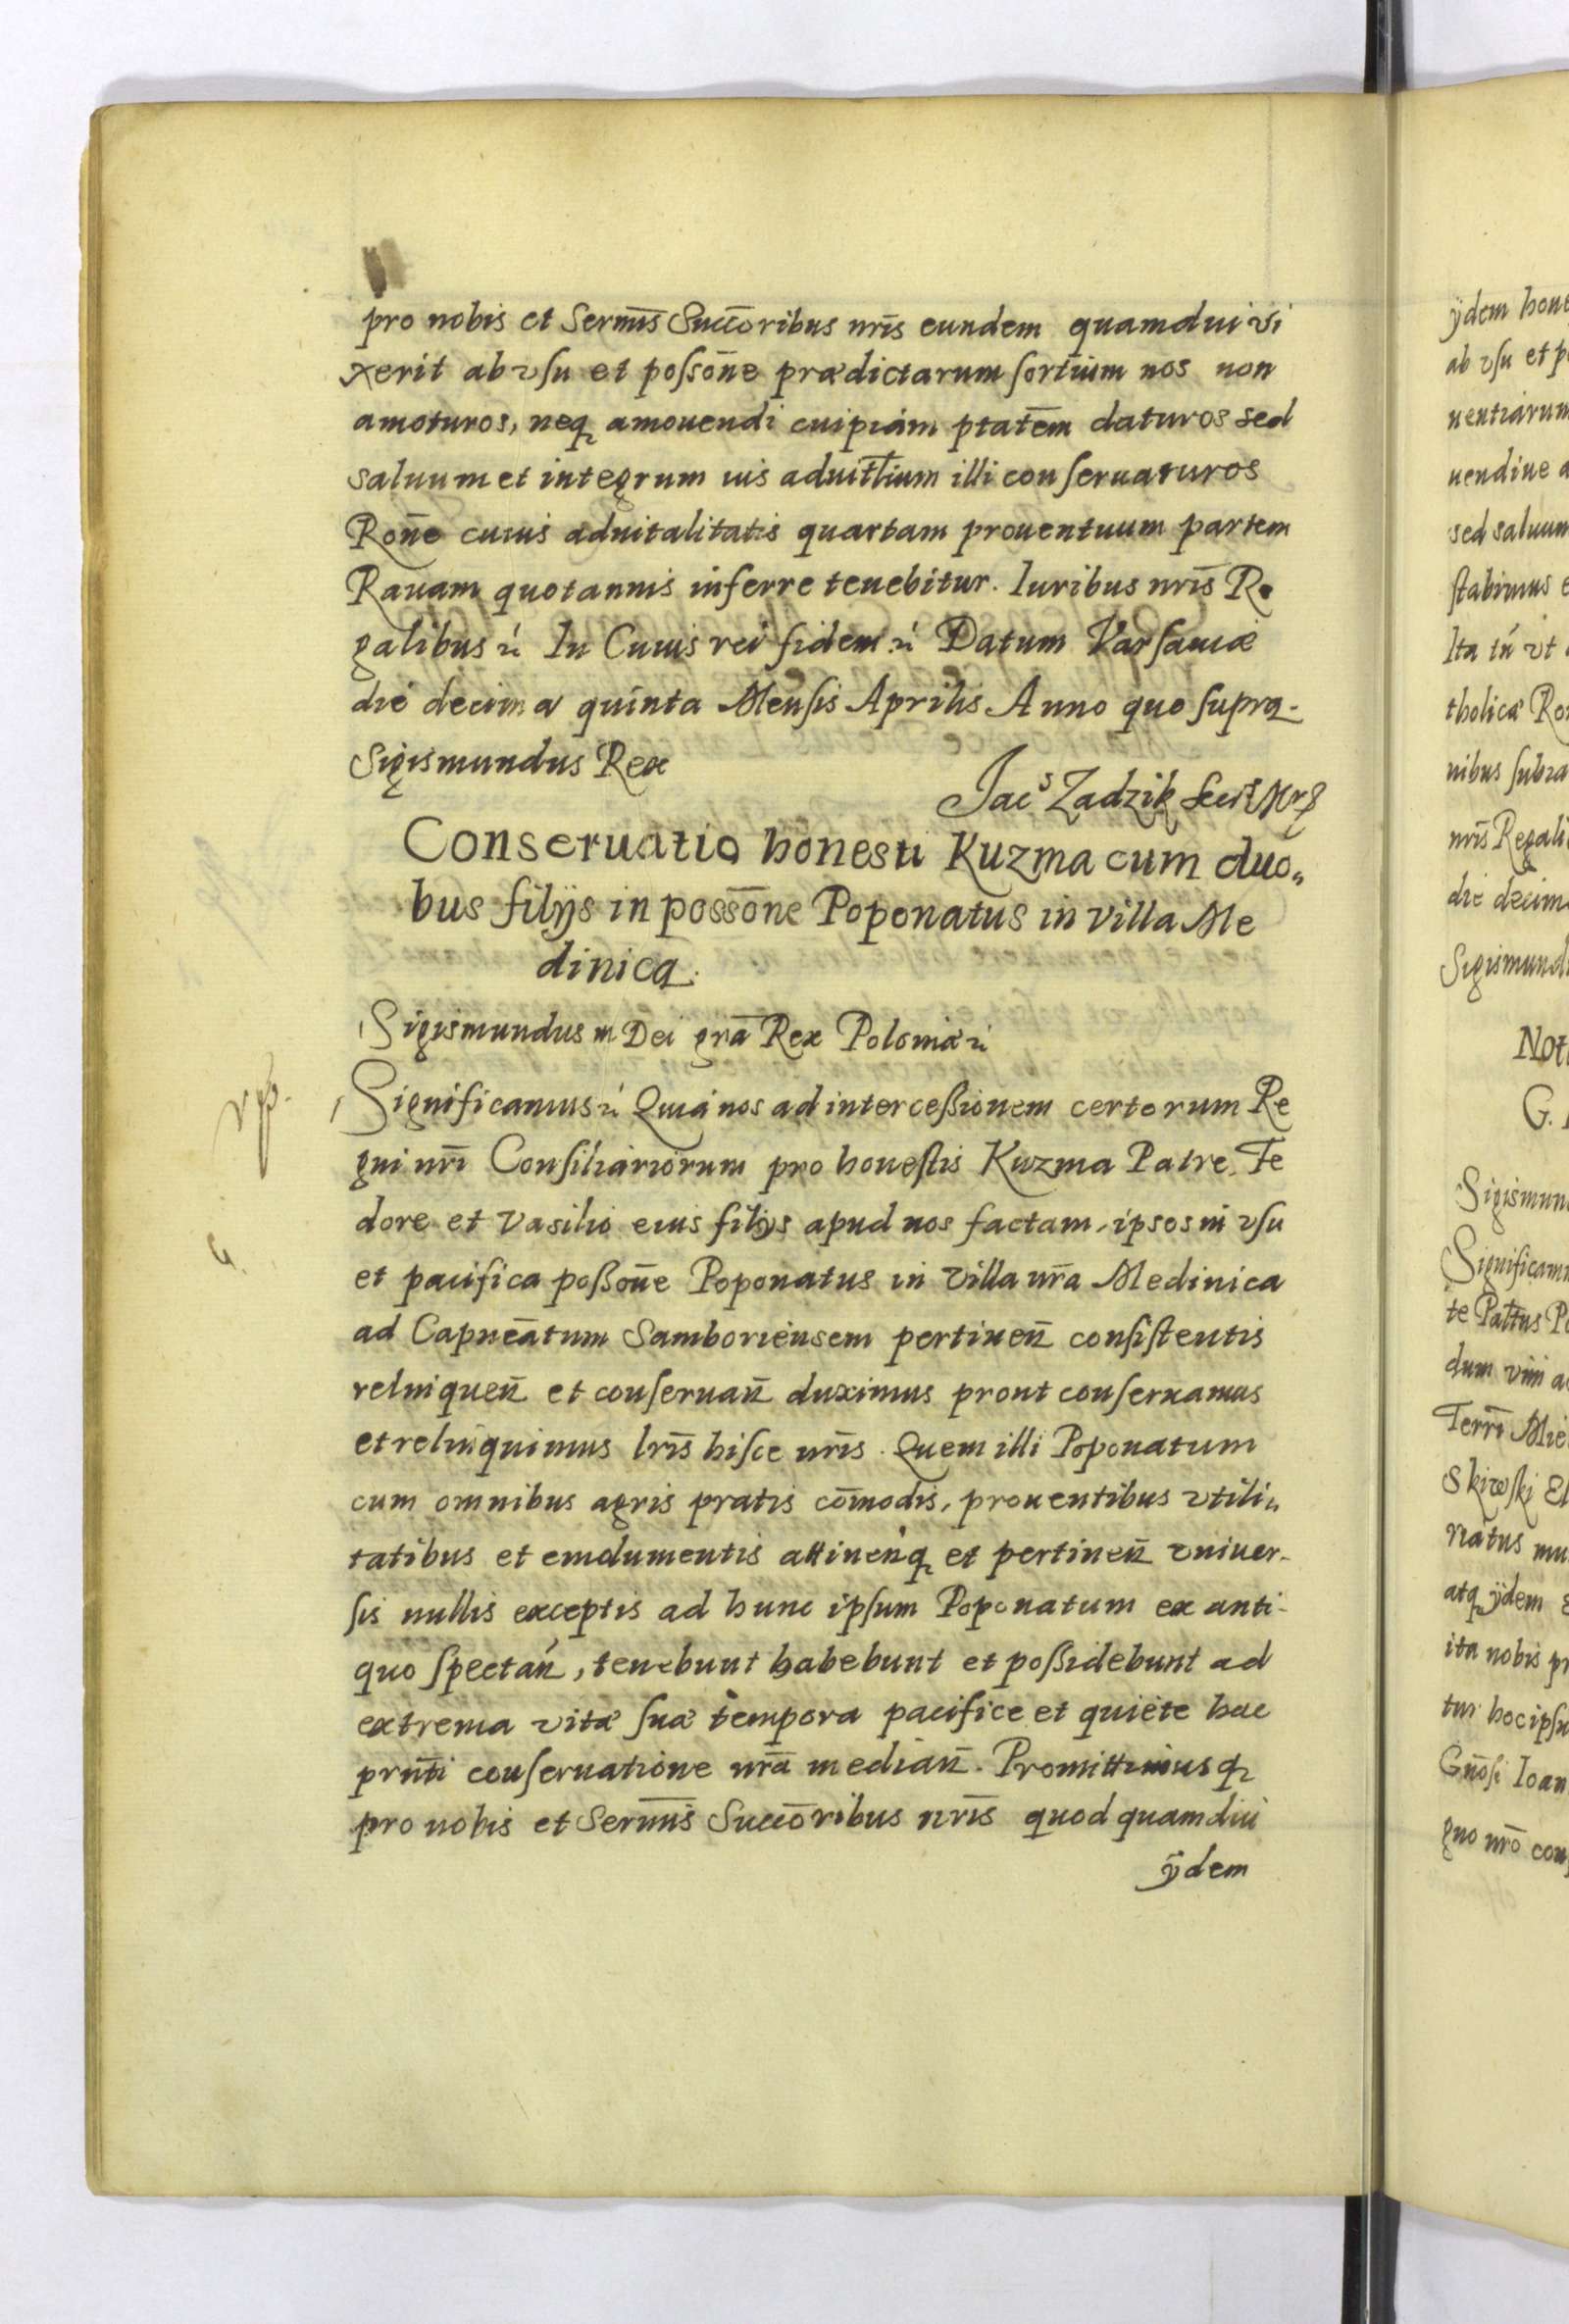 pro nobis et Serm̅s Succ̅oribus nr̅is eundem quamdui vi
xerit ab vsu et posso̅ne prædictarum sortium nos non
amoturos, neq amouendi cuipiam ptate̅m daturos sed
saluum et integrum ius aduit̅lium illi conseruaturos
Ro̅ne cuius aduitalitatis quartam prouentuum partem
Rauam quotannis inferre tenebitur. Iuribus nr̅is Re
galibus &c In Cuius rei fidem &c Datum Varsauiæ
die decima quinta Mensis Aprilis Anno quo supra.
Sigismundus Rex
Jac^s Zadzik
Conseruatio honesti Kuzma cum duo„
bus filijs in posso̅ne Poponatus in villa Me
dinica.
Sigismundus III Dei gr̅a Rex Poloniæ &c
Significamus &c Quia nos ad intercessionem certorum Re
gni nr̅i Consiliariorum pro honestis Kuzma Patre, Fe
dore et Vasilio eius filijs apud nos factam, ipsos in vsu
et pacifica posso̅ne Poponatus in villa nr̅a Medinica
ad Capnea̅tum Samboriensem pertinen̅ consistentis
relinquen̅ et conseruan̅ duximus prout conseruamus
et relinquimus lr̅is hisce nr̅is. Quem illi Poponatum
cum omnibus agris pratis co̅modis, prouentibus vtili„
tatibus et emolumentis attinen̅q et pertinen̅ vniuer-
sis nullis exceptis ad hunc ipsum Poponatum ex anti-
quo spectan̅, tenebunt habebunt et possidebunt ad
extrema vitæ suæ tempora pacifice et quiete hac
prn̅ti conseruatione nr̅a median̅. Promittimusq
pro nobis et Serm̅is Succo̅ribus nr̅is quod quamdiu
ijdem
ÿdem hone
ab vsu et po
uentiarum
uendiue a
sed saluum
stabimus e
Ita tn̅ vt
tholicæ Ro
nibus subia
nr̅is Regali
die decim
Sigismund
Not
G.
Sigismun
Significam
te Pal̅tus Po
dum vini a
Terr̅i Mie
Skiwski El
riatus mu
atq ÿdem
ita nobis pr
tur hoc ipsu
Gn̅osi Ioan
gno nr̅o con